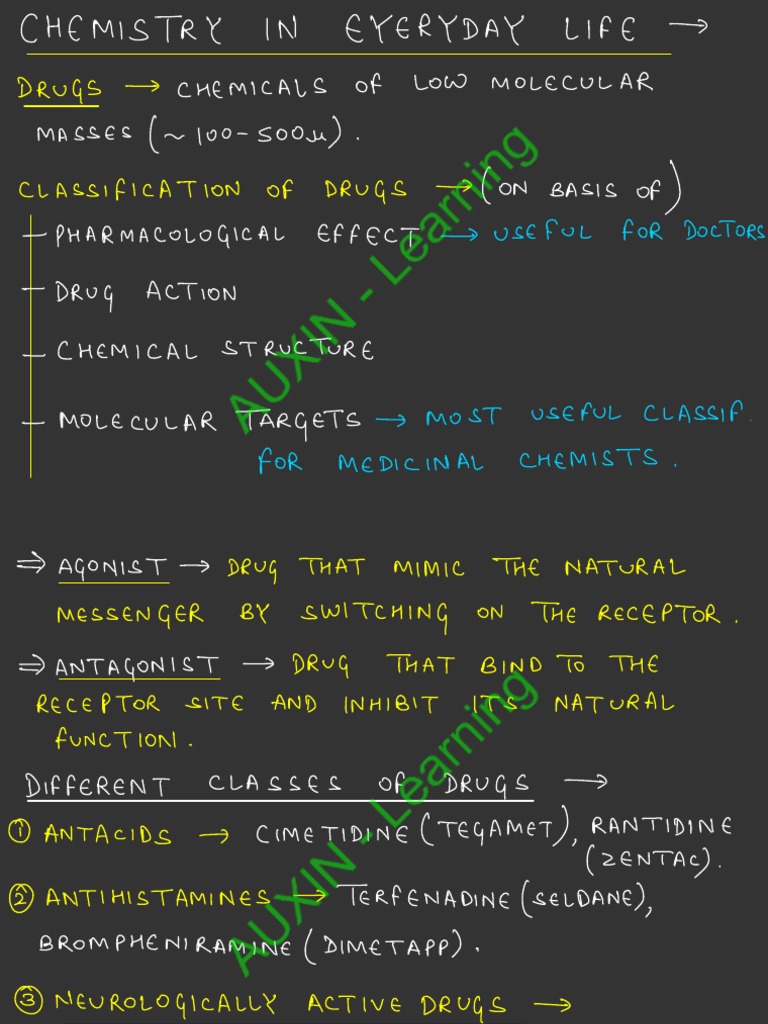 CHEMISTRY IN EVERYDAY LIFE →
DRUGS → CHEMICALS OF LOW MOLECULAR
MASSES (~100-500u).
CLASSIFICATION OF DRUGS → (ON BASIS OF)
- PHARMACOLOGICAL EFFECT → USEFUL FOR DOCTORS
- DRUG ACTION
- CHEMICAL STRUCTURE
- MOLECULAR TARGETS → MOST USEFUL CLASSIF.
FOR MEDICINAL CHEMISTS.
AUXIN - Learning
⇒ AGONIST → DRUG THAT MIMIC THE NATURAL
MESSENGER BY SWITCHING ON THE RECEPTOR.
⇒ ANTAGONIST → DRUG THAT BIND TO THE
RECEPTOR SITE AND INHIBIT ITS NATURAL
FUNCTION.
DIFFERENT CLASSES OF DRUGS →
① ANTACIDS → CIMETIDINE (TEGAMET), RANTIDINE
(ZENTAC).
② ANTIHISTAMINES → TERFENADINE (SELDANE),
BROMPHENIRAMINE (DIMETAPP).
AUXIN - Learning
③ NEUROLOGICALLY ACTIVE DRUGS →